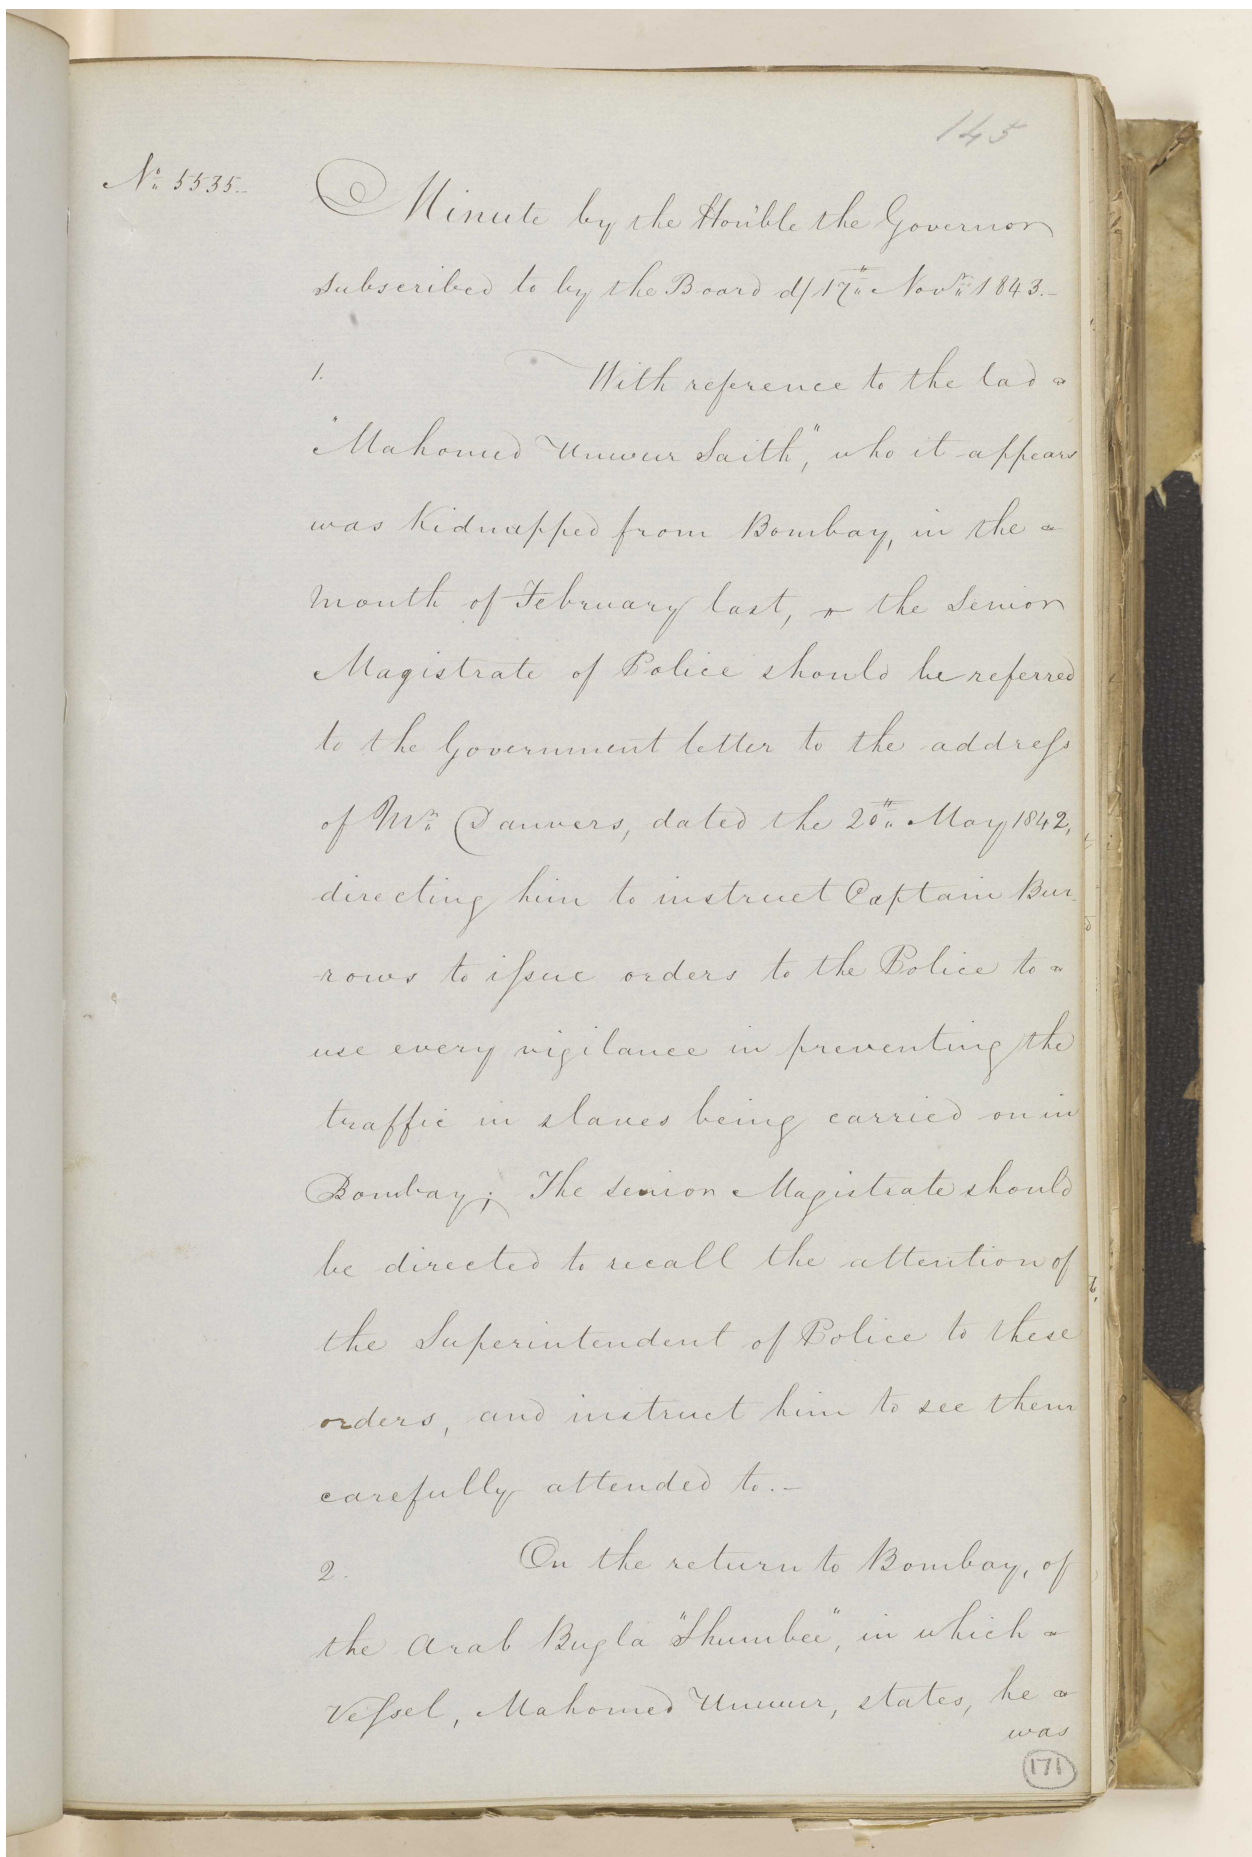 145
No. 5535.
Minute by the Hon'ble the Governor
subscribed to by the Board d/ 17th Novr 1843.-
1. With reference to the lad
"Mahomed Unwur Saith", who it appears
was Kidnapped from Bombay, in the
month of February last, the Senior
Magistrate of Police should be referred
to the Government letter to the address
of Mr. Danvers, dated the 20th May 1842,
directing him to instruct Captain Bur-
-rows to issue orders to the Police to
use every vigilance in preventing the
traffic in slaves being carried on in
Bombay; The senior Magistrate should
be directed to recall the attention of
the Superintendent of Police to these
orders, and instruct him to see them
carefully attended to.-
2. On the return to Bombay, of
the Arab Bugla "Shumbee", in which
Vessel, Mahomed Unwur, states, he
was
171